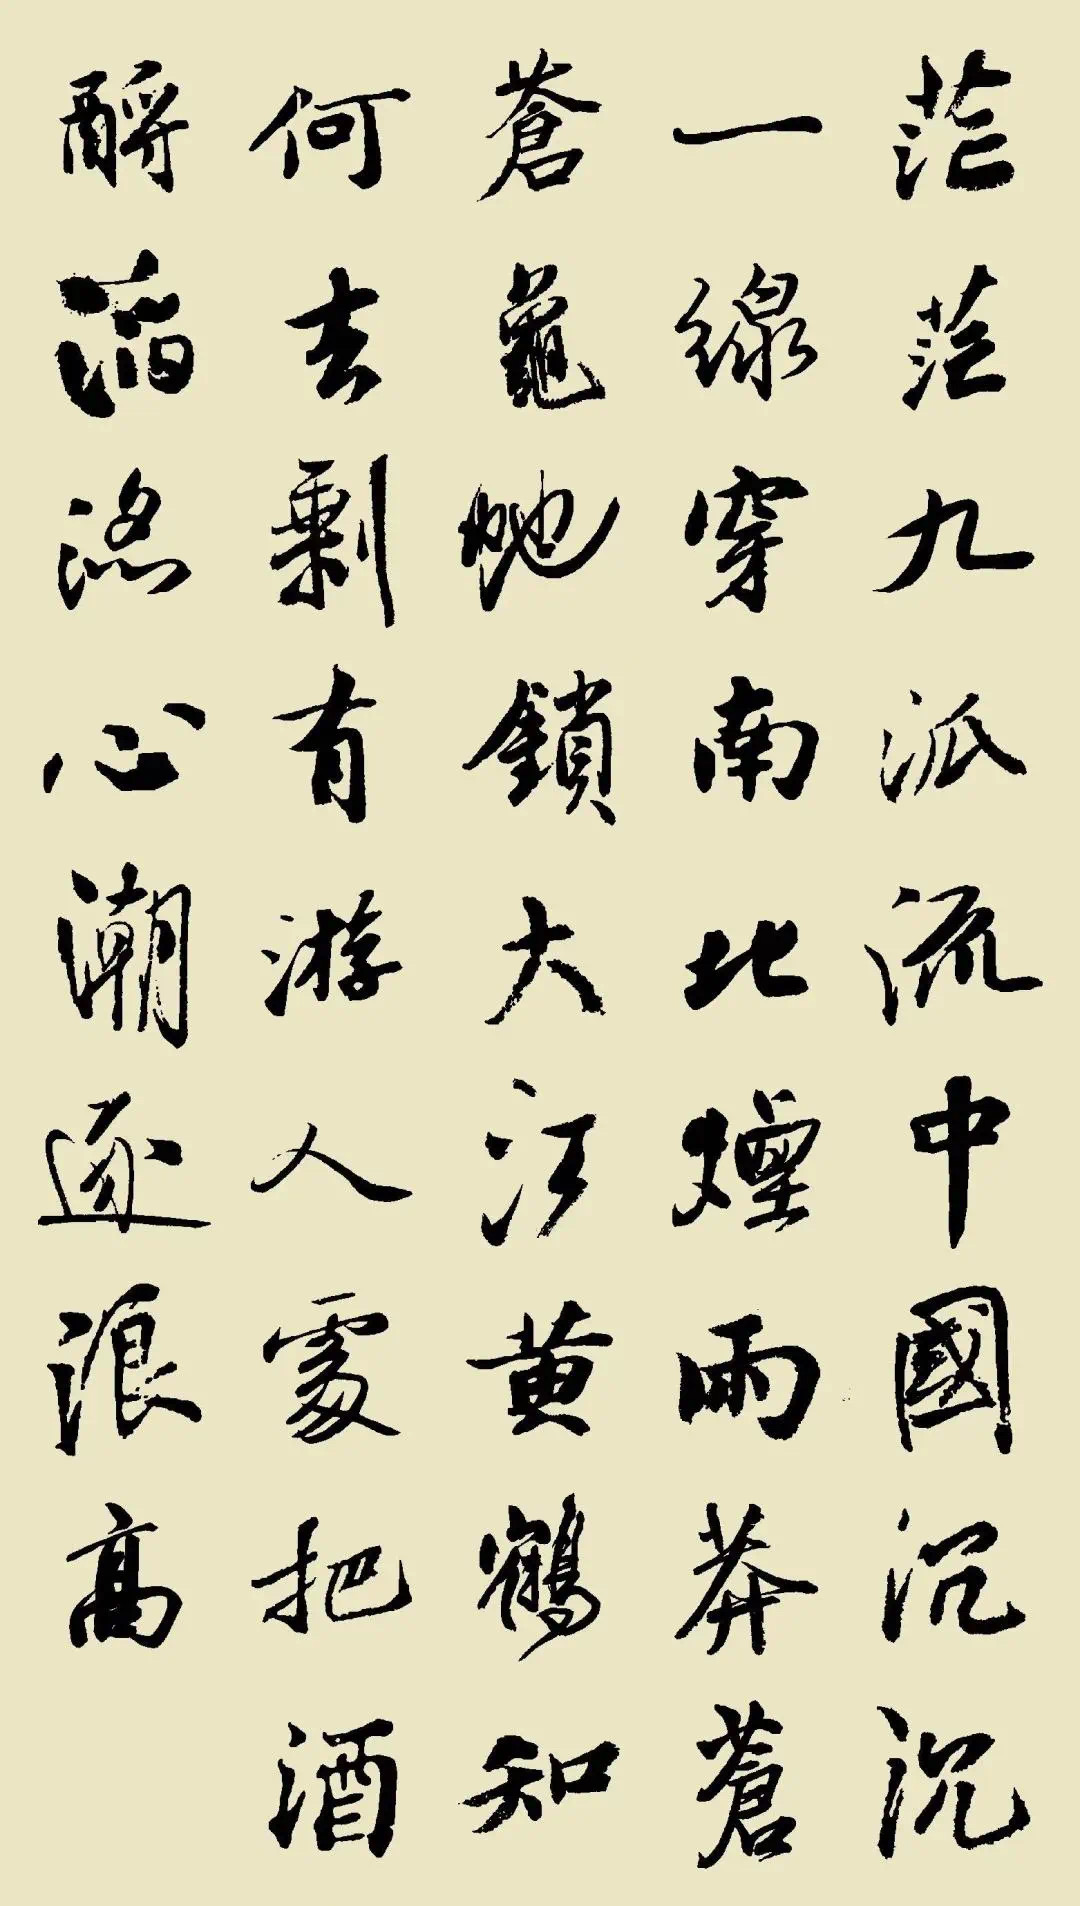 茫茫九派流中國沉沉
一線穿南北煙雨莽蒼
蒼龜虵鎖大江黄鶴知
何去剩有游人處把酒
酹滔滔心潮逐浪高